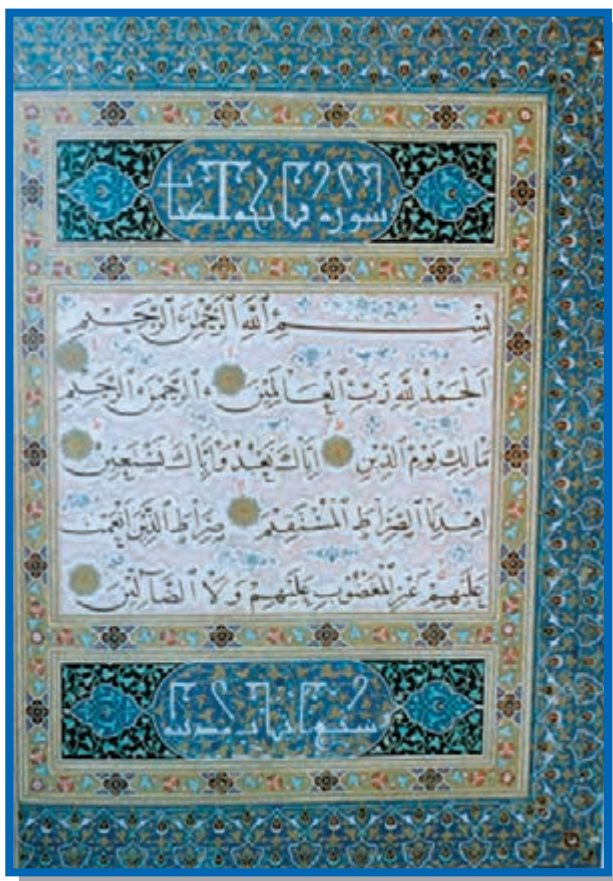 سورة فاتحة الكتاب
بِسْمِ ٱللَّهِ ٱلرَّحْمٰنِ ٱلرَّحِيمِ
اَلْحَمْدُ لِلّٰهِ رَبِّ ٱلْعَالَمِينَ ٱلرَّحْمٰنِ ٱلرَّحِيمِ
مَالِكِ يَوْمِ ٱلدِّينِ اِيَّاكَ نَعْبُدُ وَاِيَّاكَ نَسْتَعِينُ
اِهْدِنَا ٱلصِّرَاطَ ٱلْمُسْتَقِيمَ صِرَاطَ ٱلَّذِينَ اَنْعَمْتَ
عَلَيْهِمْ غَيْرِ ٱلْمَغْضُوبِ عَلَيْهِمْ وَلَا ٱلضَّآلِّينَ